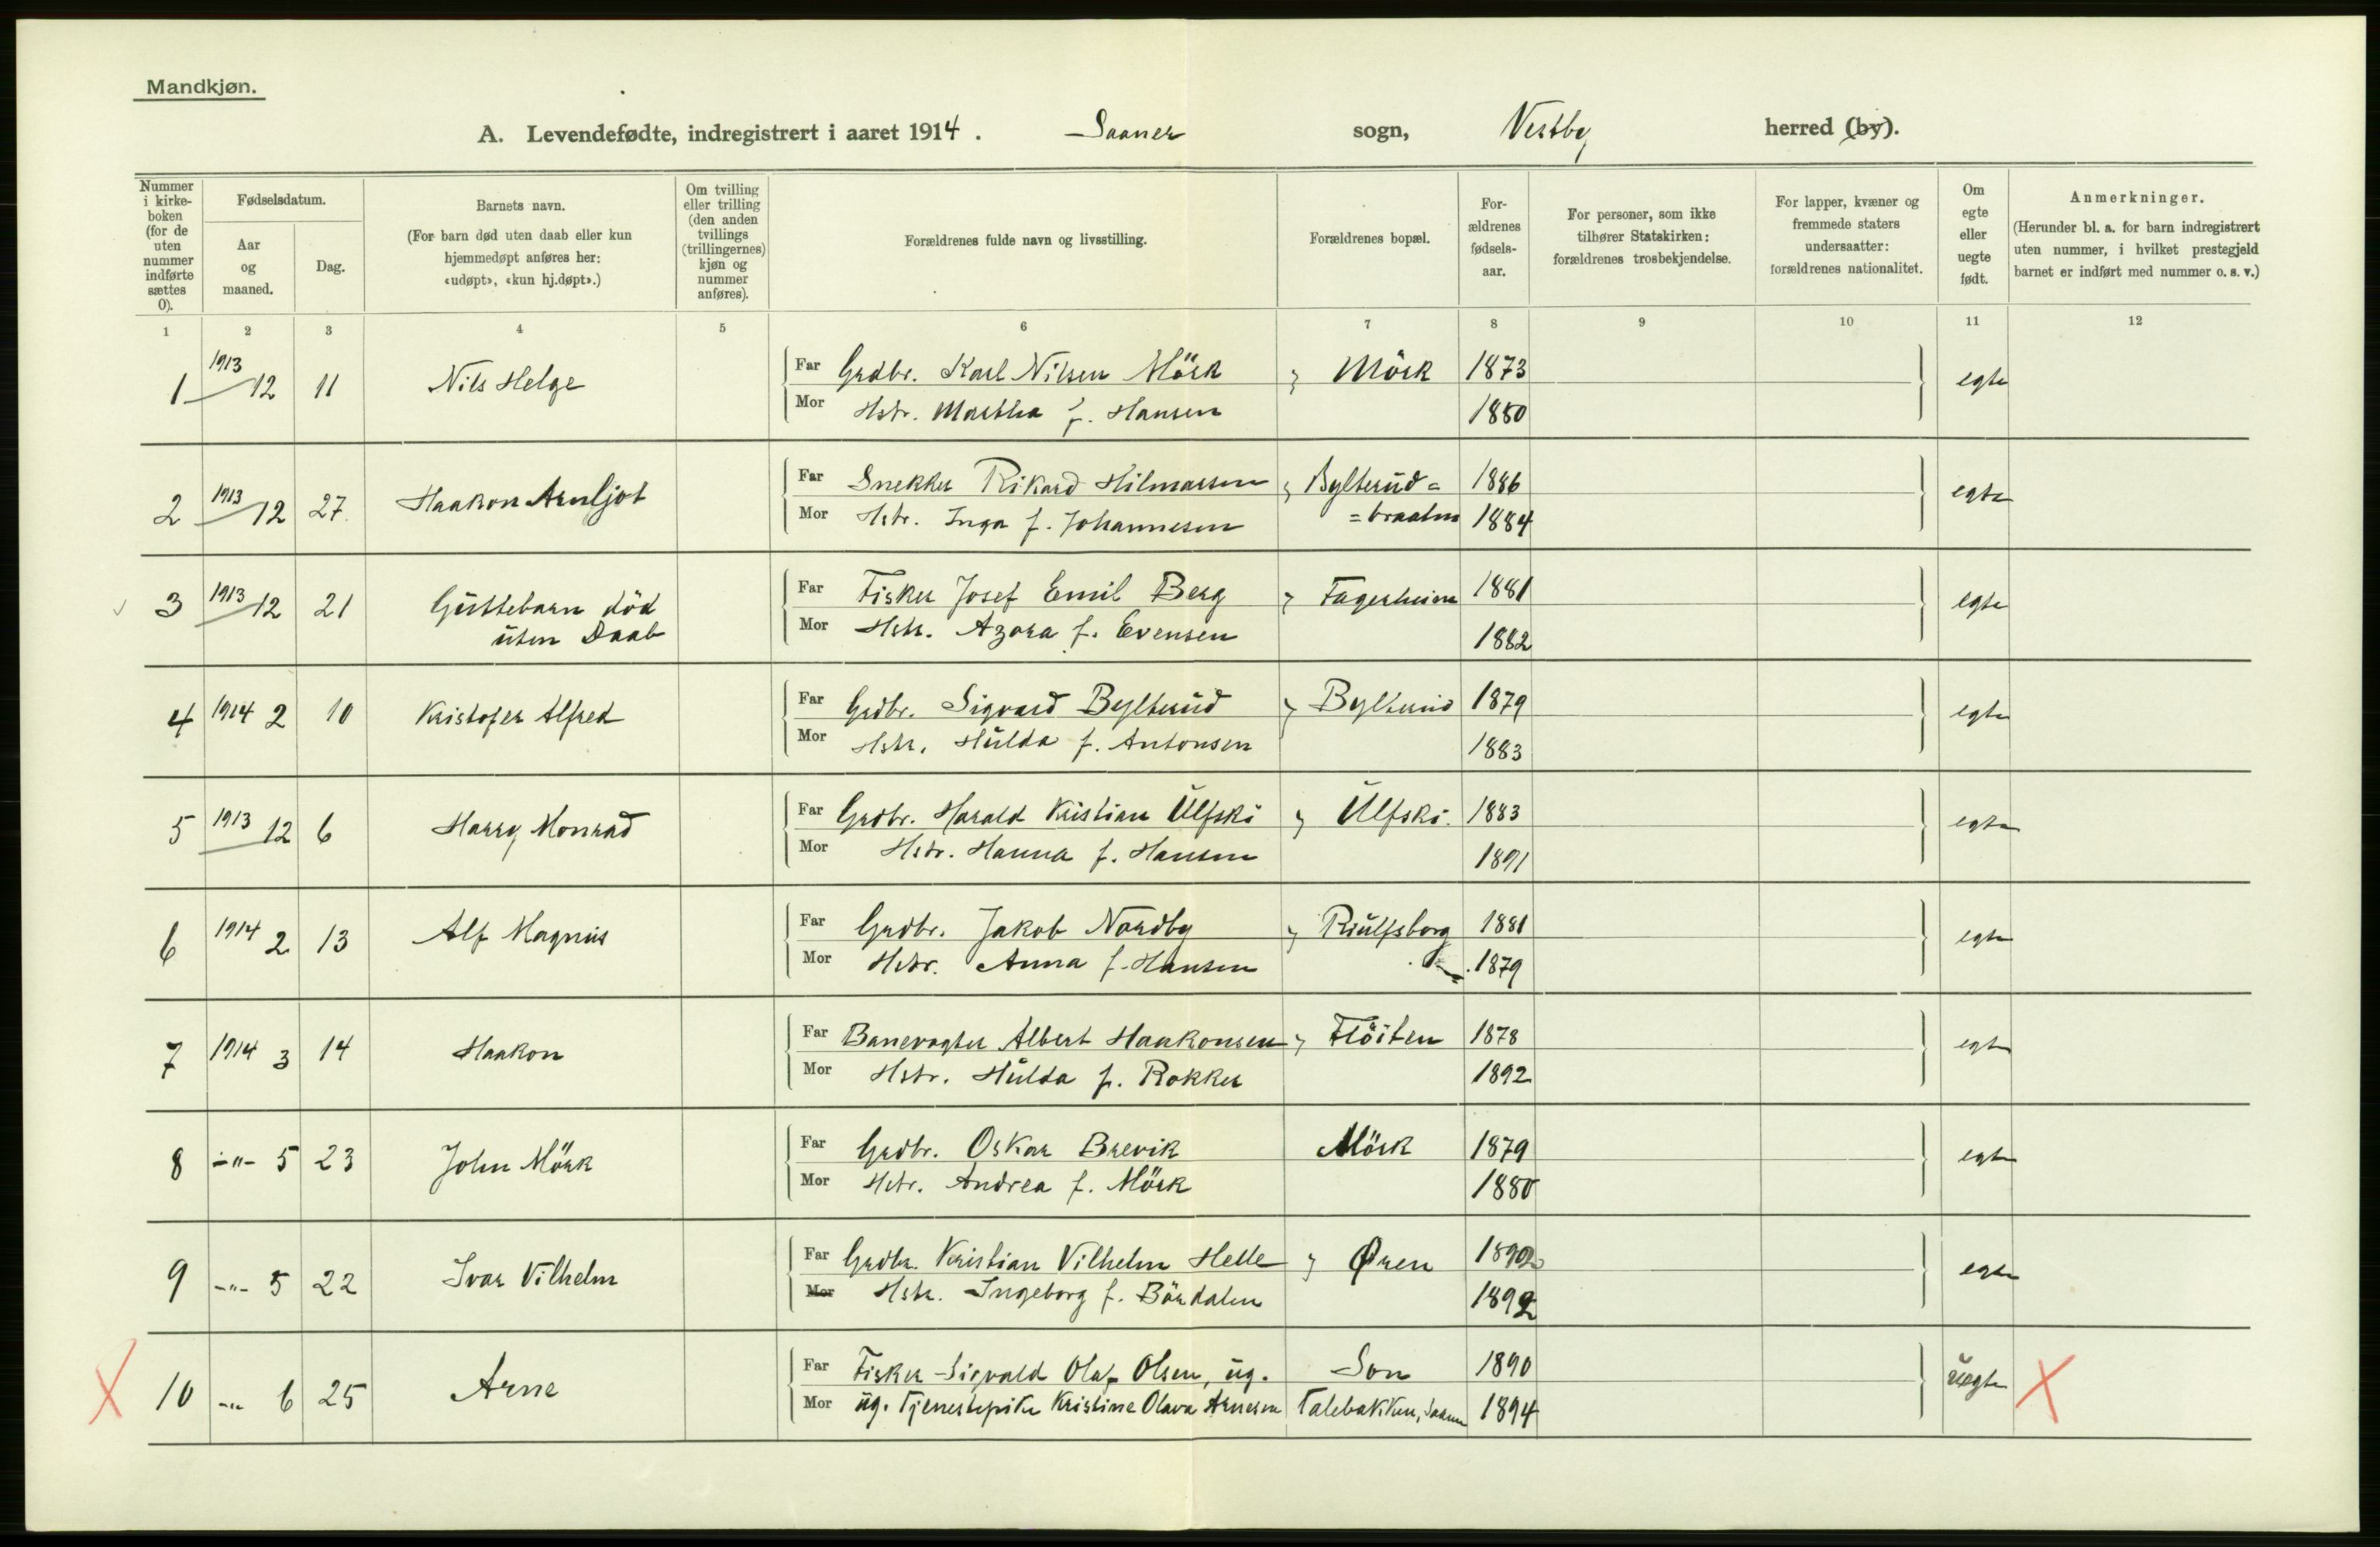 Mandkjøn.
A. Levendefødte, indregistrert i aaret 1914. Saaner sogn, Vestby herred (by).
Nummer i kirke-boken (for de uten nummer indførte sættes 0).
Fødselsdatum.
Aar og maaned.
Dag.
Barnets navn.
(For barn død uten daab eller kun hjemmedøpt anføres her: «udøpt», «kun hj.døpt».)
Om tvilling eller trilling (den anden tvillings (trillingernes) kjøn og nummer anføres).
Forældrenes fulde navn og livsstilling.
Forældrenes bopæl.
For-ældrenes fødsels-aar.
For personer, som ikke tilhører Statskirken: forældrenes trosbekjendelse.
For lapper, kvæner og fremmede staters undersaatter: forældrenes nationalitet.
Om egte eller uegte født.
Anmerkninger.
(Herunder bl. a. for barn indregistrert uten nummer, i hvilket prestegjeld barnet er indført med nummer o. s. v.)
1 2 3 4 5 6 7 8 9 10 11 12
1 1913 12 11 Nils Helge Far Grdbr. Karl Nilsen Mörk Mörk 1873 egte
Mor Hstr. Martha f. Hansen 1880
2 1913 12 27. Haakon Arnljot Far Snekker Rikard Hilmarsen Bylterud= 1886 egte
Mor Hstr. Inga f. Johannesen =braaten 1884
3 1913 12 21 Guttebarn död Far Fisker Josef Emil Berg Fagerheim 1881 egte
uten Daab Mor Hstr. Azora f. Evensen 1882
4 1914 2 10 Kristofer Alfred Far Grdbr. Sigvard Bylterud Bylterud 1879 egte
Mor Hstr. Hulda f. Antonsen 1883
5 1913 12 6 Harry Monrad Far Grdbr. Harald Kristian Ulfski Ulfski. 1883 egte
Mor Hstr. Hanna f. Hansen 1891
6 1914 2 13 Alf Magnus Far Grdbr. Jakob Nordby Riulfsborg 1881 egte
Mor Hstr. Anna f. Hansen 1879
7 1914 3 14 Haakon Far Banevogter Albert Haakonsen Flöiten 1878 egte
Mor Hstr. Hulda f. Rokker 1892
8 -"- 5 23 John Mörk Far Grdbr. Oskar Brevik Mörk 1879 egte
Mor Hstr. Andrea f. Mörk 1880
9 -"- 5 22 Ivar Vilhelm Far Grdbr. Kristian Vilhelm Helle Øren egte
Mor Hstr. Ingeborg f. Bördalen 1892
X 10 -"- 6 25 Arne Far Fisker Sigvald Olaf Olsen, ug. Son 1890 uegte X
Mor ug. Tjenestepike Kristine Olava Arnesen Talebakken, Saaner 1894